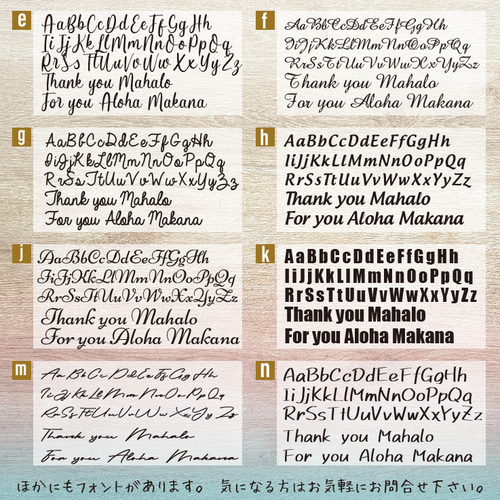 e
AaBbCcDdEeFfGgHh
IiJjKkLlMmNnOoPpQq
RrSsTtUuVvWwXxYyZz
Thank you Mahalo
For you Aloha Makana
f
AaBbCcDdEeFfGgHh
IiJjKkLlMmNnOoPpQq
RrSsTtUuVvWwXxYyZz
Thank you Mahalo
For you Aloha Makana
g
AaBbCcDdEeFfGgHh
IiJjKkLlMmNnOoPpQq
RrSsTtUuVvWwXxYyZz
Thank you Mahalo
For you Aloha Makana
h
AaBbCcDdEeFfGgHh
IiJjKkLlMmNnOoPpQq
RrSsTtUuVvWwXxYyZz
Thank you Mahalo
For you Aloha Makana
j
AaBbCcDdEeFfGgHh
IiJjKkLlMmNnOoPpQq
RrSsTtUuVvWwXxYyZz
Thank you Mahalo
For you Aloha Makana
k
AaBbCcDdEeFfGgHh
IiJjKkLlMmNnOoPpQq
RrSsTtUuVvWwXxYyZz
Thank you Mahalo
For you Aloha Makana
m
AaBbCcDdEeFfGgHh
IiJjKkLlMmNnOoPpQq
RrSsTtUuVvWwXxYyZz
Thank you Mahalo
For you Aloha Makana
n
AaBbCcDdEeFfGgHh
IiJjKkLlMmNnOoPpQq
RrSsTtUuVvWwXxYyZz
Thank you Mahalo
For you Aloha Makana
ほかにもフォントがあります。 気になる方はお気軽にお問合せ下さい。